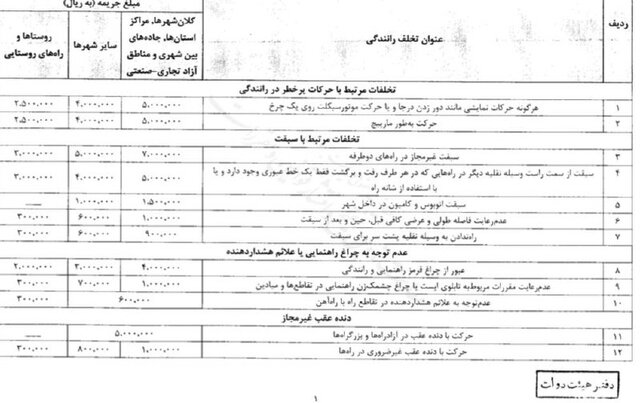 مبلغ جریمه (به ریال)
ردیف
عنوان تخلف رانندگی
کلان‌شهرها، مراکز
استان‌ها، جاده‌های
بین شهری و مناطق
آزاد تجاری-صنعتی
سایر شهرها
روستاها و
راه‌های روستایی
تخلفات مرتبط با حرکات پرخطر در رانندگی
۱ هرگونه حرکات نمایشی مانند دور زدن درجا و یا حرکت موتورسیکلت روی یک چرخ ۵,۰۰۰,۰۰۰ ۴,۰۰۰,۰۰۰ ۲,۵۰۰,۰۰۰
۲ حرکت به‌طور مارپیچ ۵,۰۰۰,۰۰۰ ۴,۰۰۰,۰۰۰ ۲,۵۰۰,۰۰۰
تخلفات مرتبط با سبقت
۳ سبقت غیرمجاز در راه‌های دوطرفه ۷,۰۰۰,۰۰۰ ۵,۰۰۰,۰۰۰ ۳,۰۰۰,۰۰۰
۴ سبقت از سمت راست وسیله نقلیه دیگر در راه‌هایی که در هر طرف رفت و برگشت فقط یک خط عبوری وجود دارد و یا
با استفاده از شانه راه ۵,۰۰۰,۰۰۰ ۴,۰۰۰,۰۰۰ ۳,۰۰۰,۰۰۰
۵ سبقت اتوبوس و کامیون در داخل شهر ۱,۵۰۰,۰۰۰ ۱,۰۰۰,۰۰۰ ___
۶ عدم‌رعایت فاصله طولی و عرضی کافی قبل، حین و بعد از سبقت ۱,۰۰۰,۰۰۰ ۶۰۰,۰۰۰ ۳۰۰,۰۰۰
۷ راه‌ندادن به وسیله نقلیه پشت سر برای سبقت ۹۰۰,۰۰۰ ۶۰۰,۰۰۰ ۳۰۰,۰۰۰
عدم توجه به چراغ راهنمایی یا علائم هشداردهنده
۸ عبور از چراغ قرمز راهنمایی و رانندگی ۴,۰۰۰,۰۰۰ ۳,۰۰۰,۰۰۰ ۲,۰۰۰,۰۰۰
۹ عدم‌رعایت مقررات مربوط‌به تابلوی ایست یا چراغ چشمک‌زن راهنمایی در تقاطع‌ها و میادین ۱,۰۰۰,۰۰۰ ۷۰۰,۰۰۰ ۳۰۰,۰۰۰
۱۰ عدم‌توجه به علائم هشداردهنده در تقاطع راه با راه‌آهن ۶۰۰,۰۰۰ ۳۰۰,۰۰۰
دنده عقب غیرمجاز
۱۱ حرکت با دنده عقب در آزادراه‌ها و بزرگراه‌ها ۵,۰۰۰,۰۰۰ ___
۱۲ حرکت با دنده عقب غیرضروری در راه‌ها ۱,۰۰۰,۰۰۰ ۸۰۰,۰۰۰ ۳۰۰,۰۰۰
دفتر هیئت دولت
۱